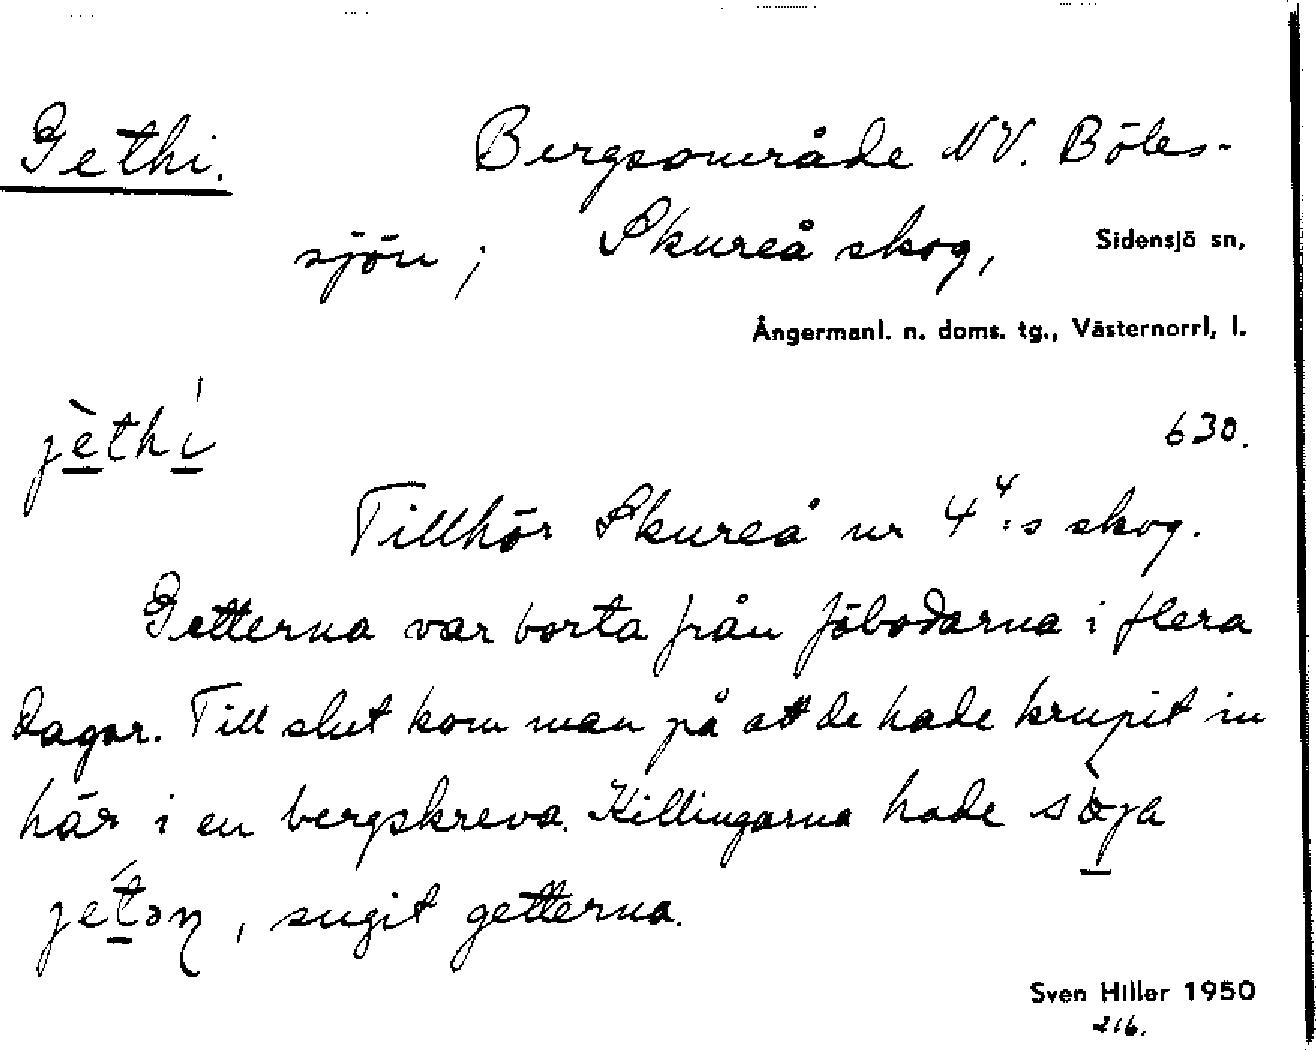 Gethi. Bergsområde NV. Böles-
sjön; Skureå skog, Sidensjö sn,
Ångermanl. n. doms. tg., Västernorrl, l.
jèthí 630.
Tillhör Skureå nr 4⁴:s skog.
Getterna var borta från fäbodarna i flera
dagar. Till slut kom man på att de hade krupit in
här i en bergskreva. Killingarna hade
sugit getterna.
Sven Hiller 1950
216.